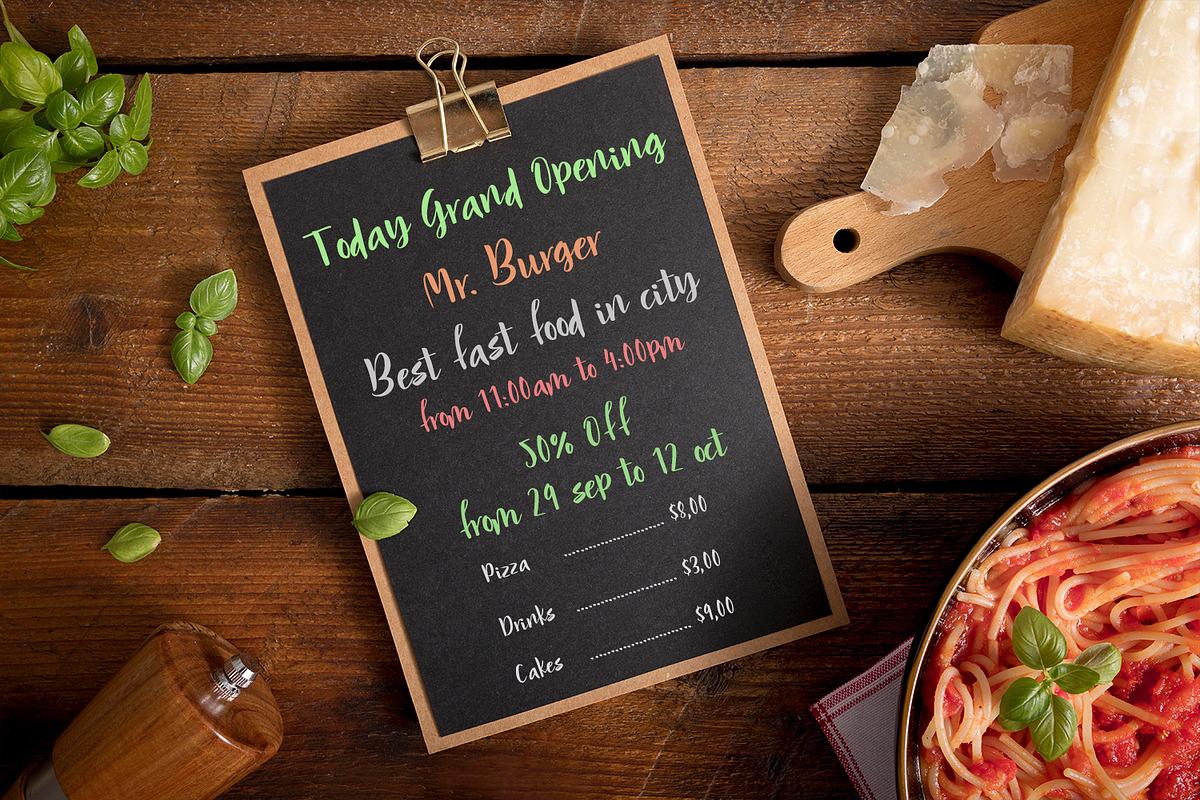 Today Grand Opening
Mr. Burger
Best fast food in city
from 11:00am to 4:00pm
50% Off
from 29 sep to 12 oct
Pizza ........................ $8,00
Drinks ........................ $3,00
Cakes ........................ $9,00